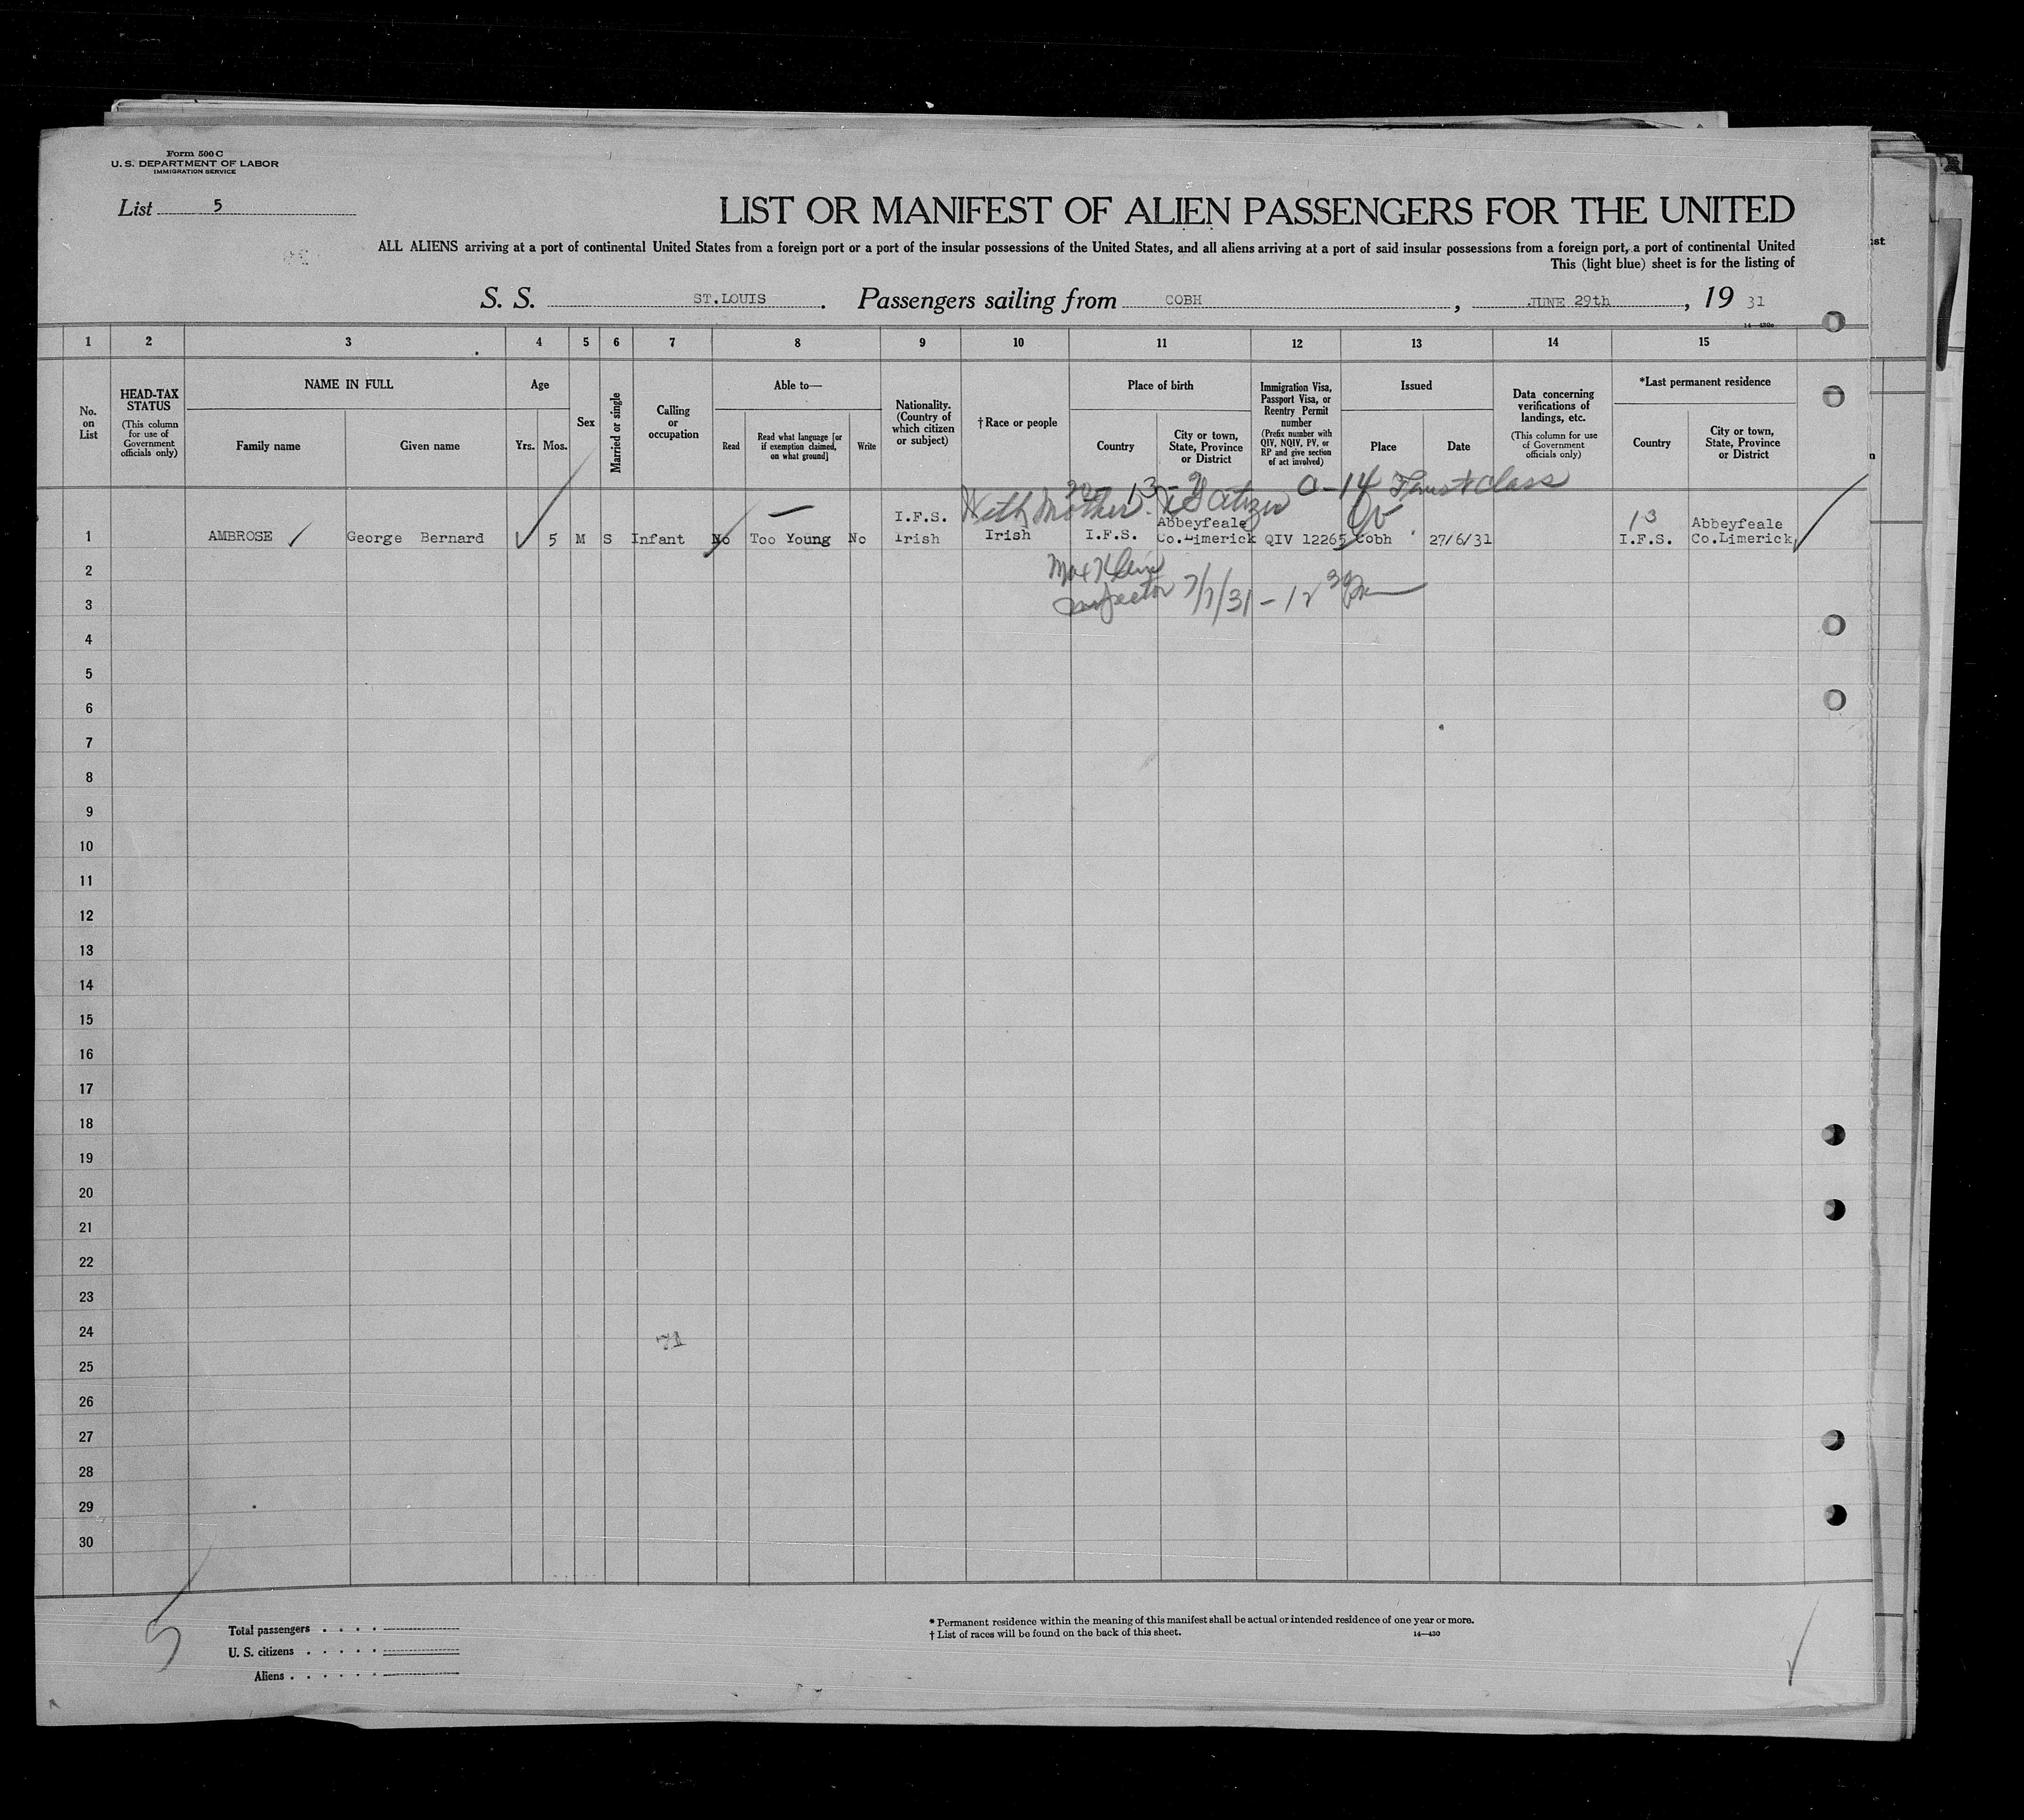 Form 500 C
U. S. DEPARTMENT OF LABOR
IMMIGRATION SERVICE
List 5
LIST OR MANIFEST OF ALIEN PASSENGERS FOR THE UNITED
ALL ALIENS arriving at a port of continental United States from a foreign port or a port of the insular possessions of the United States, and all aliens arriving at a port of said insular possessions from a foreign port, a port of continental United
This (light blue) sheet is for the listing of
S. S. ST.LOUIS. Passengers sailing from COBH, JUNE 29th, 19 31
1 2 3 4 5 6 7 8 9 10 11 12 13 14 15
No. on List
HEAD-TAX STATUS
(This column for use of Government officials only)
NAME IN FULL
Family name
Given name
Age
Yrs. Mos.
Sex
Married or single
Calling or occupation
Able to—
Read
Read what language [or if exemption claimed, on what ground]
Write
Nationality. (Country of which citizen or subject)
† Race or people
Place of birth
Country
City or town, State, Province or District
Immigration Visa, Passport Visa, or Reentry Permit number
(Prefix number with QIV, NQIV, PV, or RP and give section of act involved)
Issued
Place
Date
Data concerning verifications of landings, etc.
(This column for use of Government officials only)
*Last permanent residence
Country
City or town, State, Province or District
13 C-14 First class
With Mother US Citizen
I.F.S. Abbeyfeale 13 Abbeyfeale
1 AMBROSE George Bernard 5 M S Infant No Too Young No Irish Irish I.F.S. Co.Limerick QIV 12265 Cobh 27/6/31 I.F.S. Co.Limerick
2
Inspector 7/7/31 - 12 30 pm
3
4
5
6
7
8
9
10
11
12
13
14
15
16
17
18
19
20
21
22
23
24
71
25
26
27
28
29
30
5
Total passengers
U. S. citizens
Aliens
* Permanent residence within the meaning of this manifest shall be actual or intended residence of one year or more.
† List of races will be found on the back of this sheet.
14—430